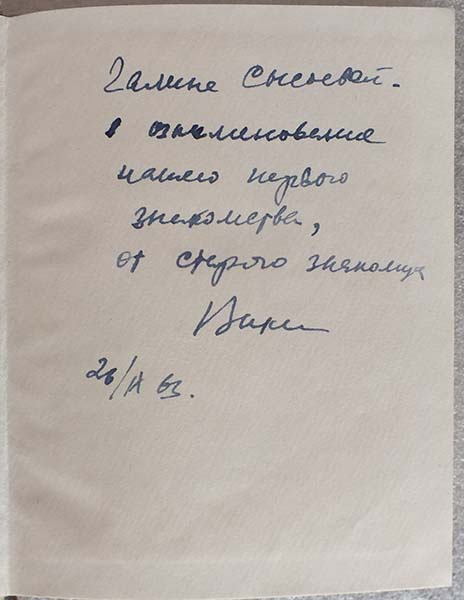 Галине Сысоевой.
в ознаменование
нашего первого
знакомства,
от старого знакомца
26/IX 63.